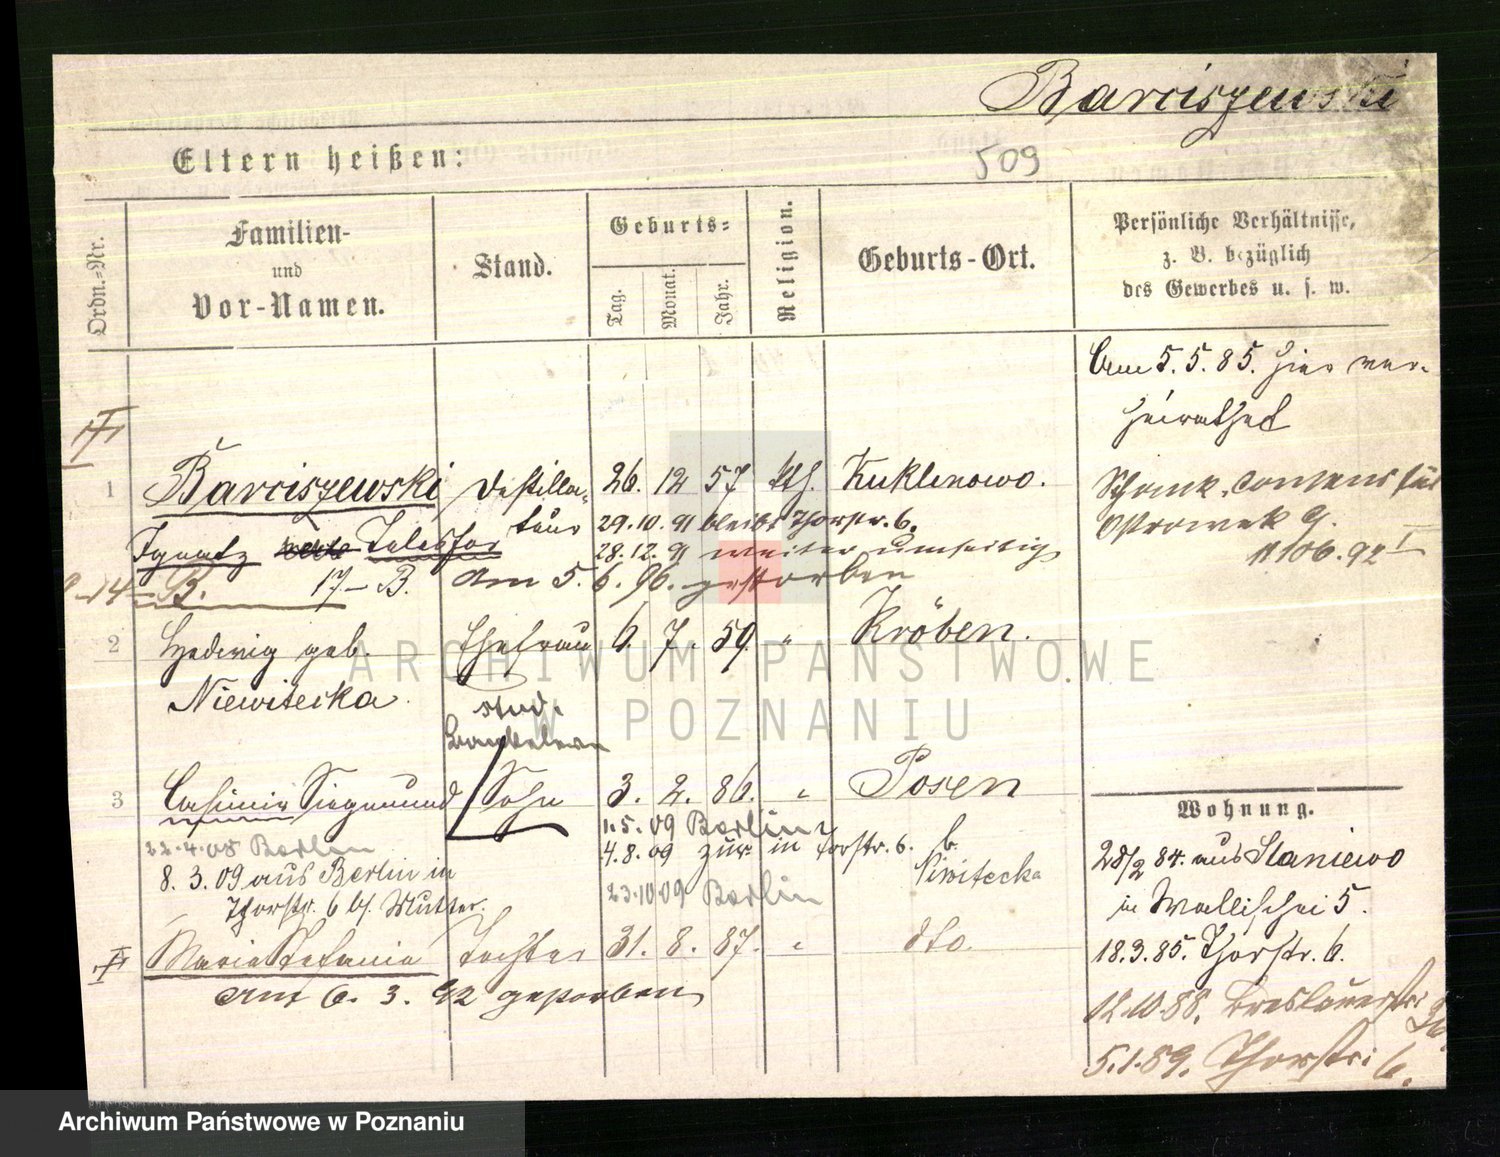 Barciszewski
509
Eltern heißen:
Ordn.-Nr.
Familien-
und
Vor-Namen.
Stand.
Geburts-
Tag.
Monat.
Jahr.
Religion.
Geburts-Ort.
Persönliche Verhältnisse,
z. B. bezüglich
des Gewerbes u. s. w.
Am 5. 5. 85. hier ver-
heirathet
1 Barciszewski Destilla-
teur 26. 12 57 kth. Kuklinowo.
Ignatz Telesfor
29.10.91 bleibt Thorstr. 6.
28.12.91 weiter umseitig
B. 17- B. Am 5. 6. 96. gestorben
Ostrowek 9.
2 Hedwig geb. Ehefrau 6. 7. 59. " Kröben.
Niewitecka
stud.
3 Casimir Siegmund Sohn 3. 2. 86. " Posen
22.4.08 Berlin
1.5.09 Berlin
8. 3. 09 aus Berlin in
Thorstr. 6 b/. Mutter.
4.8.09 zur. in Torstr. 6. b.
Niwitecka
23.10.09 Berlin
Maria Stefania Tochter 31. 8. 87. " dto.
Am 6. 3. 92 gestorben
Wohnung.
28/2 84. aus Staniewo
in Wallischei 5.
18.3.85. Thorstr. 6.
12.10.88. Breslauerstr. 36.
5.1.89. Thorstr. 6.
ARCHIWUM PAŃSTWOWE
W POZNANIU
Archiwum Państwowe w Poznaniu